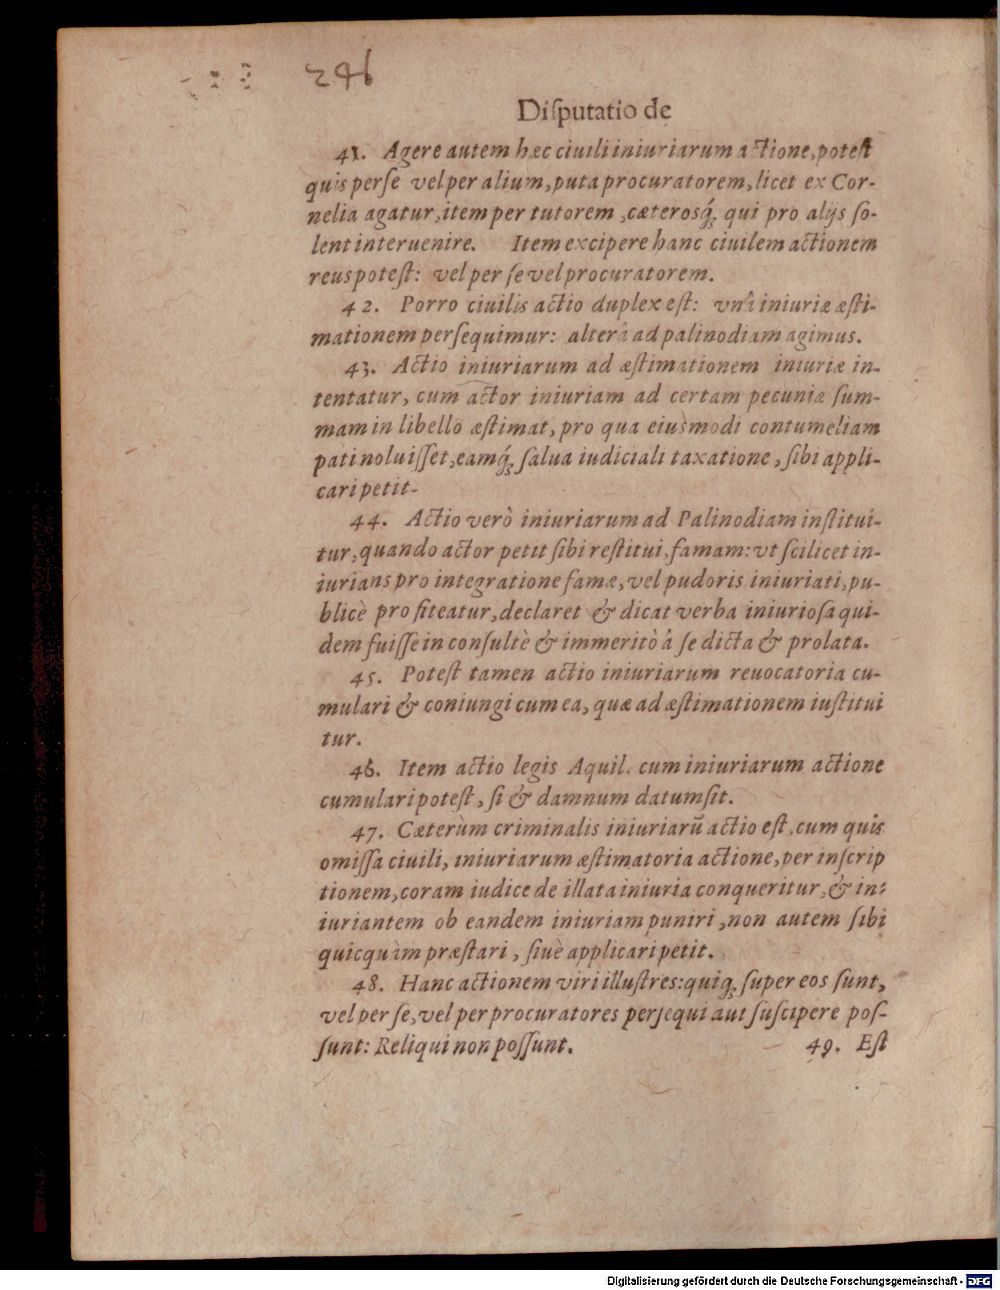 246
Diſputatio de
41. Agere autem hæc ciuili iniuriarum actione, poteſt
quis per ſe vel per alium, puta procuratorem, licet ex Cor-
nelia agatur, item per tutorem, cæterosq́; qui pro alijs ſo-
lent interuenire. Item excipere hanc ciuilem actionem
reus poteſt: vel per ſe vel procuratorem.
42. Porro ciuilis actio duplex eſt: vnâ iniuriæ æſti-
mationem perſequimur: alterâ ad palinodiam agimus.
43. Actio iniuriarum ad æſtimationem iniuriæ in-
tentatur, cum actor iniuriam ad certam pecuniæ ſum-
mam in libello æſtimat, pro qua eiusmodi contumeliam
pati noluiſſet, eamq́; ſalua iudiciali taxatione, ſibi appli-
cari petit-
44. Actio verò iniuriarum ad Palinodiam inſtitui-
tur, quando actor petit ſibi reſtitui, famam: vt ſcilicet in-
iurians pro integratione famæ, vel pudoris iniuriati, pu-
blicè profiteatur, declaret & dicat verba iniurioſa qui-
dem fuiſſe inconſultè & immeritò â ſe dicta & prolata.
45. Poteſt tamen actio iniuriarum reuocatoria cu-
mulari & coniungi cum ea, quæ ad æſtimationem iuſtitui
tur.
46. Item actio legis Aquil. cum iniuriarum actione
cumulari poteſt, ſi & damnum datum ſit.
47. Cæterùm criminalis iniuriarū actio eſt, cum quis
omiſſa ciuili, iniuriarum æſtimatoria actione, per inſcrip
tionem, coram iudice de illata iniuria conqueritur, & in-
iuriantem ob eandem iniuriam puniri, non autem ſibi
quicquàm præſtari, ſiuè applicari petit.
48. Hanc actionem viri illuſtres: quiq; ſuper eos ſunt,
vel per ſe, vel per procuratores perſequi aut ſuſcipere poſ-
ſunt: Reliqui non poſſunt. 49. Eſt
Digitalisierung gefördert durch die Deutsche Forschungsgemeinschaft - DFG